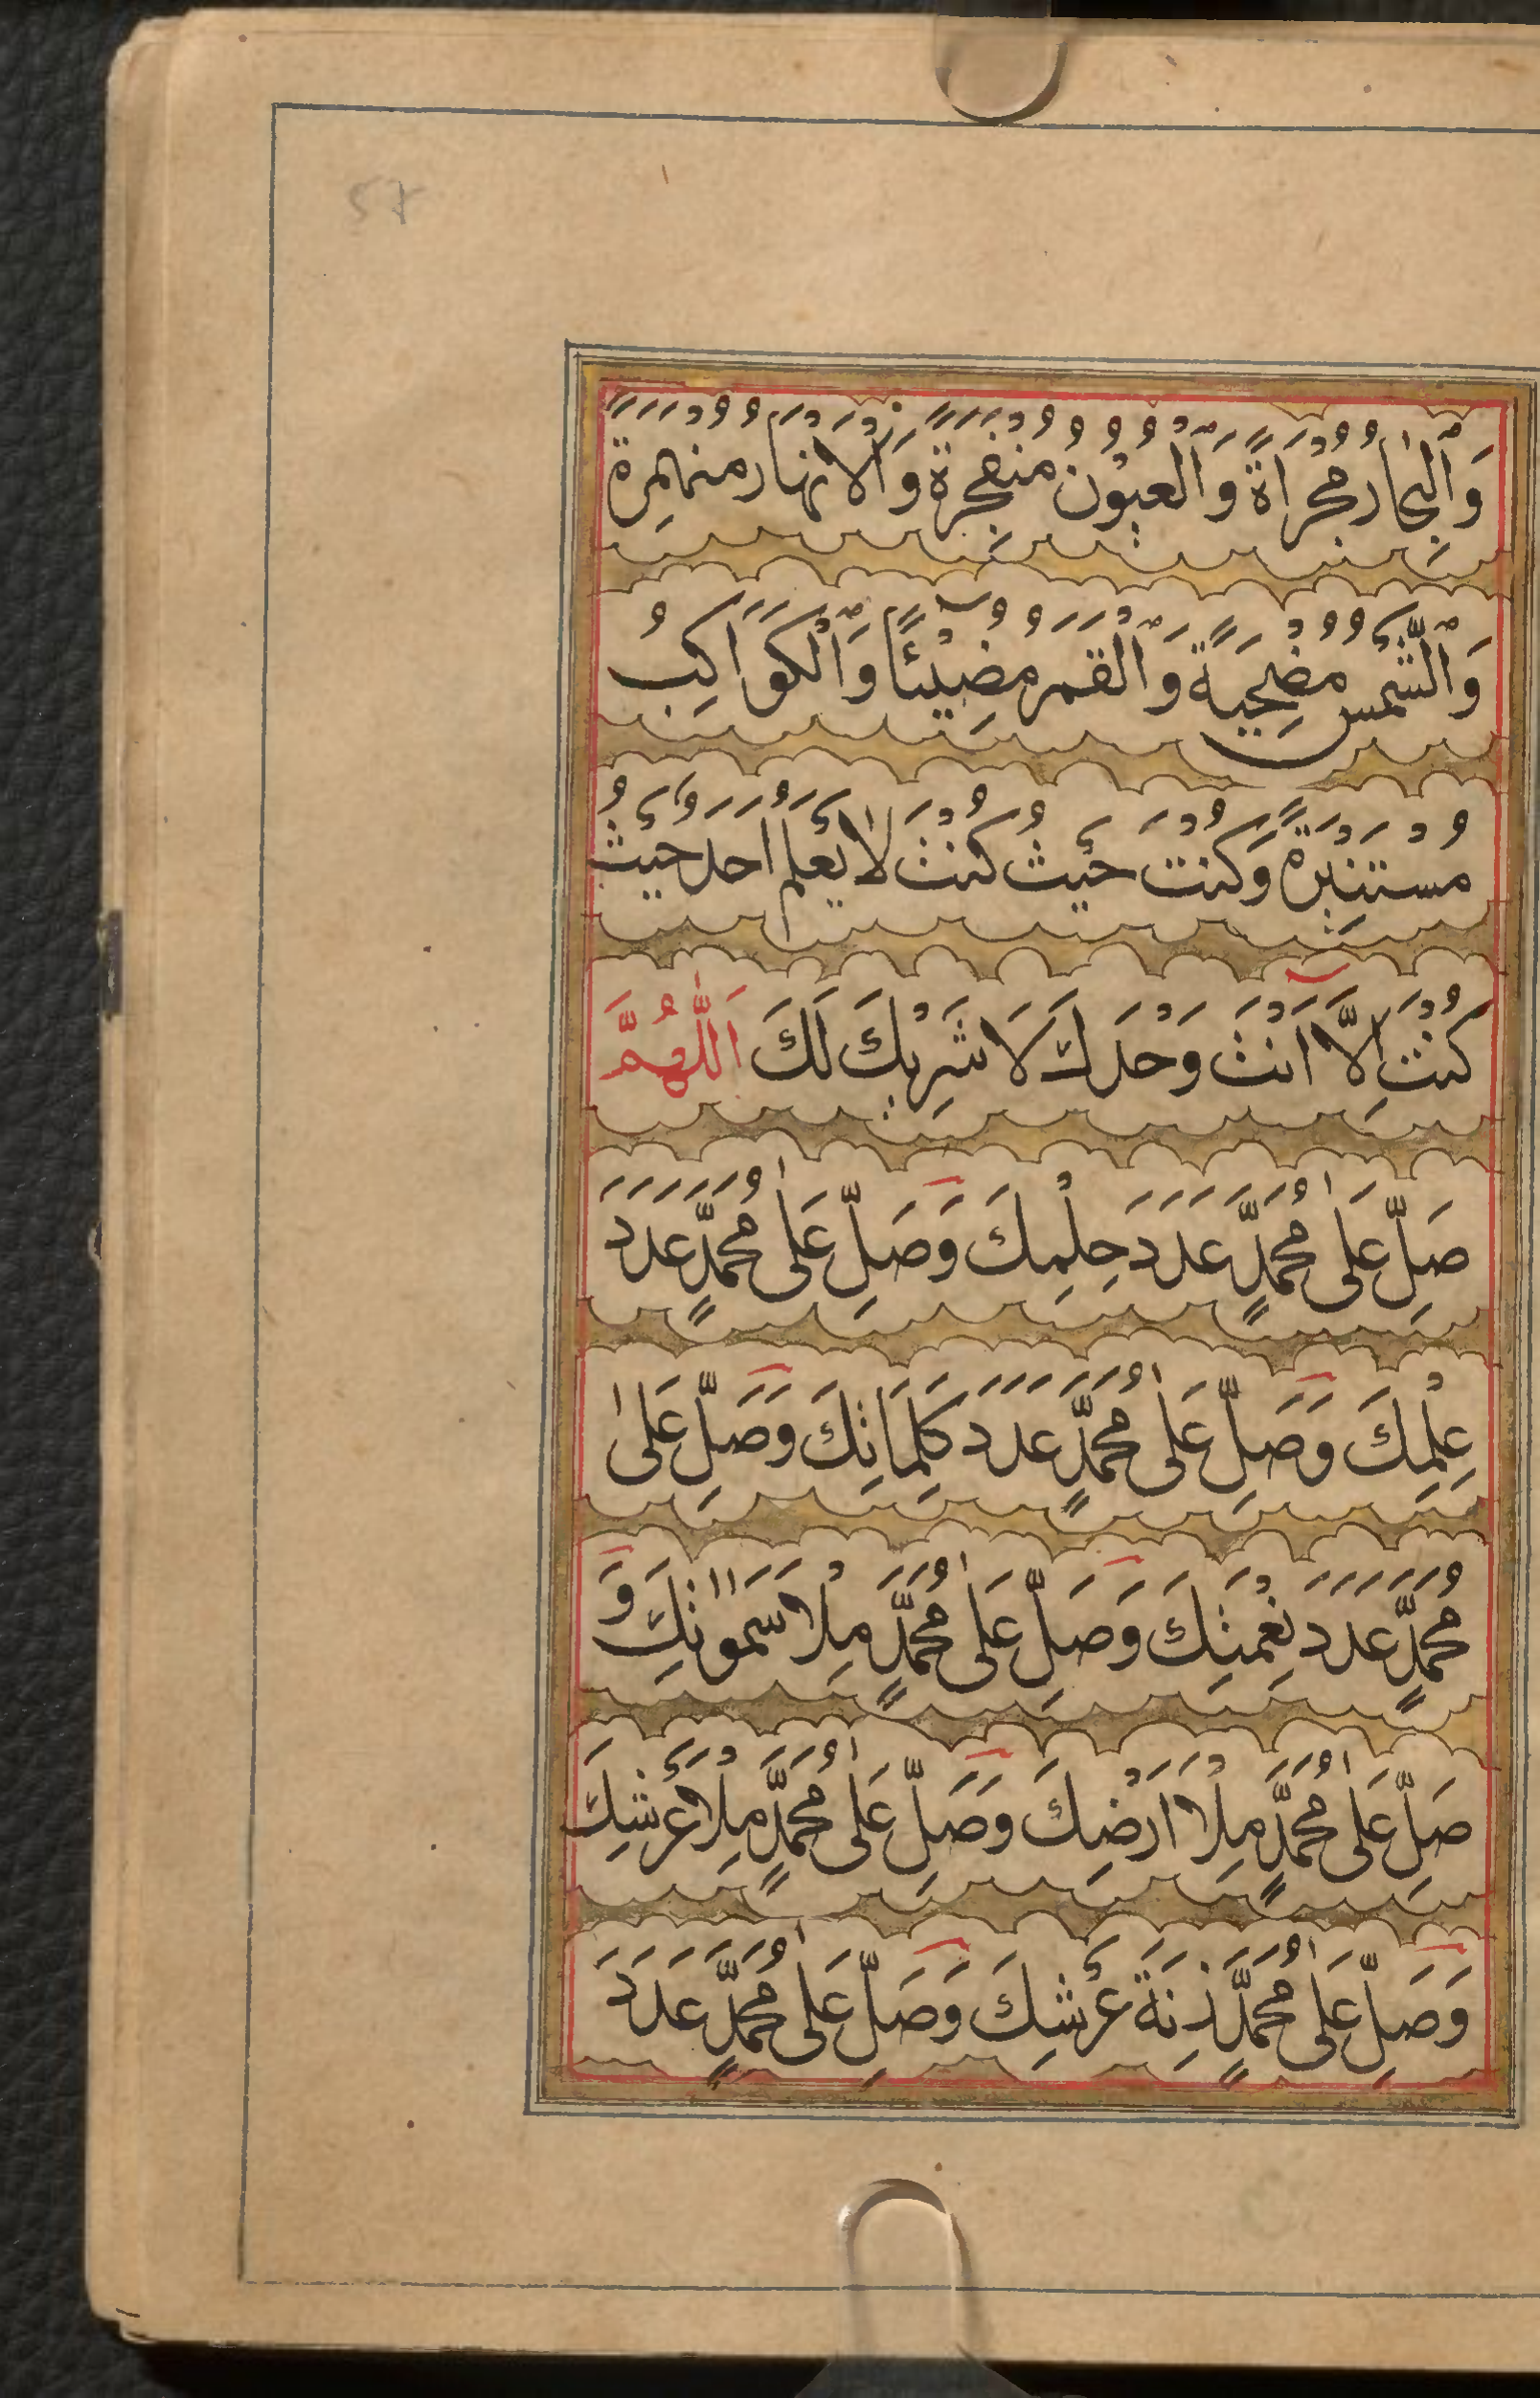 57
وَالْبِحَارُ مُجْرَاةً وَالْعُيُوْنُ مُنْفَجِرَةً وَالْاَنْهَارُ مُنْهَمِرَةً
وَالشَّمْسُ مُضْحِيَةً وَالْقَمَرُ مُضِيْئًا وَالْكَوَاكِبُ
مُسْتَنِيْرَةً وَكُنْتَ حَيْثُ كُنْتَ لَا يَعْلَمُ اَحَدٌ حَيْثُ
كُنْتَ اِلَّا اَنْتَ وَحْدَكَ لَا شَرِيْكَ لَكَ اَللّٰهُمَّ
صَلِّ عَلٰى مُحَمَّدٍ عَدَدَ حِلْمِكَ وَصَلِّ عَلٰى مُحَمَّدٍ عَدَدَ
عِلْمِكَ وَصَلِّ عَلٰى مُحَمَّدٍ عَدَدَ كَلِمَاتِكَ وَصَلِّ عَلٰى
مُحَمَّدٍ عَدَدَ نِعْمَتِكَ وَصَلِّ عَلٰى مُحَمَّدٍ مِلْاَ سَمٰوٰتِكَ وَ
صَلِّ عَلٰى مُحَمَّدٍ مِلْاَ اَرْضِكَ وَصَلِّ عَلٰى مُحَمَّدٍ مِلْاَ عَرْشِكَ
وَصَلِّ عَلٰى مُحَمَّدٍ زِنَةَ عَرْشِكَ وَصَلِّ عَلٰى مُحَمَّدٍ عَدَدَ